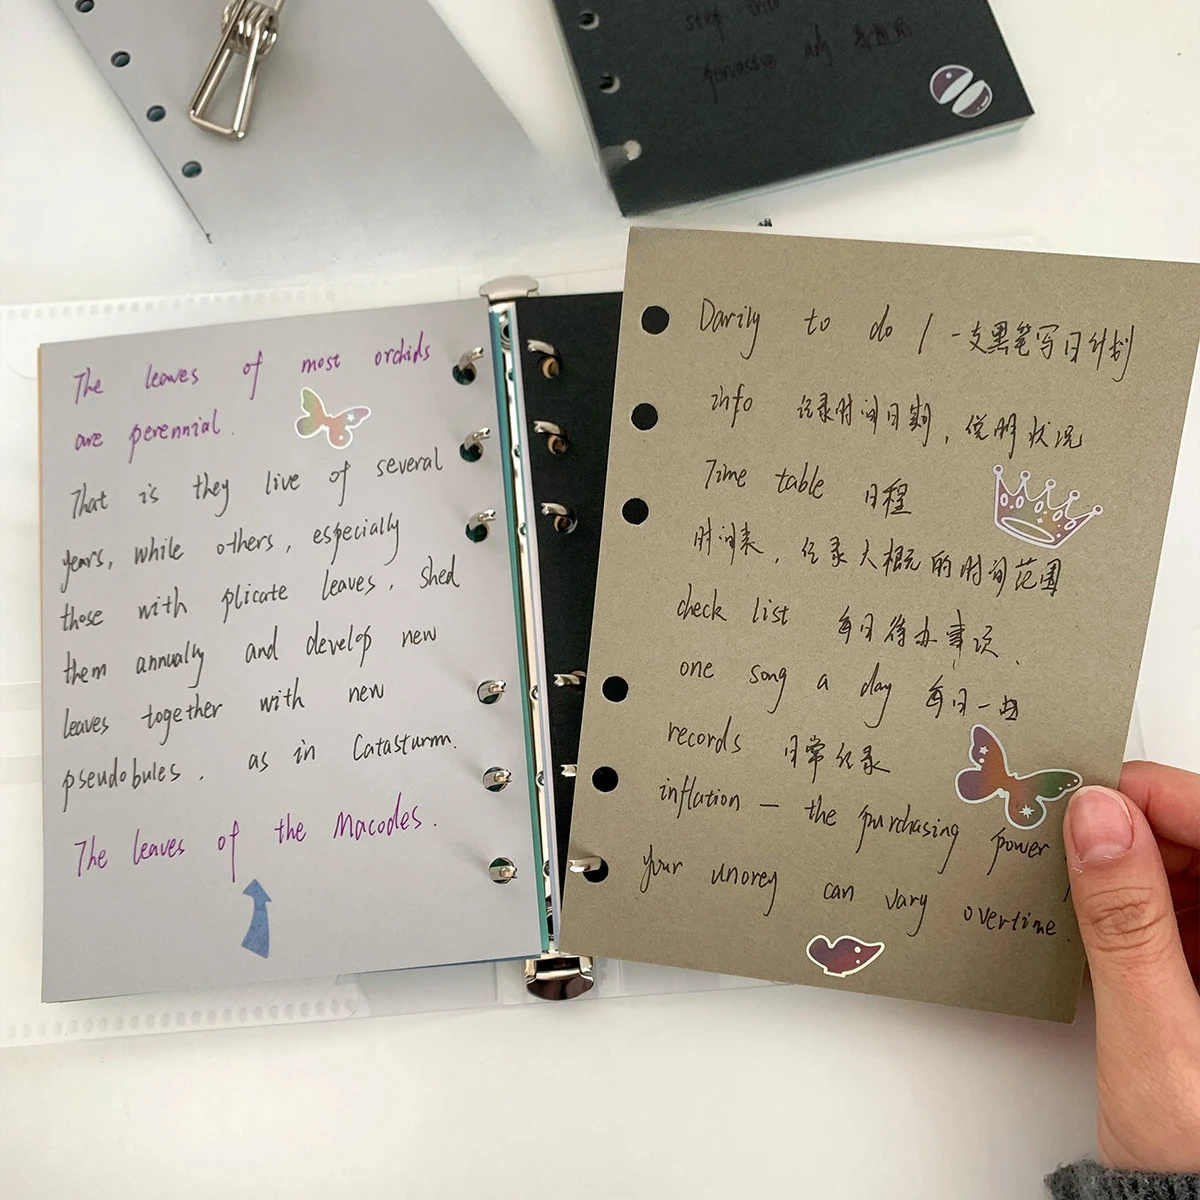 step into
pervasive adj 普遍的
The leaves of most orchids
are perennial.
That is they live of several
years, while others, especially
those with plicate leaves, shed
them annually and develop new
leaves together with new
pseudobules, as in Catasturm.
The leaves of the Macodes.
Darily to do / 一支黑笔写日计划
info 记录时间日期，说明状况
Time table 日程
时间表，记录大概的时间范围
check list 每日待办事项.
one song a day 每日一曲
records 日常记录
inflation — the purchasing power
your unorey can vary overtime.